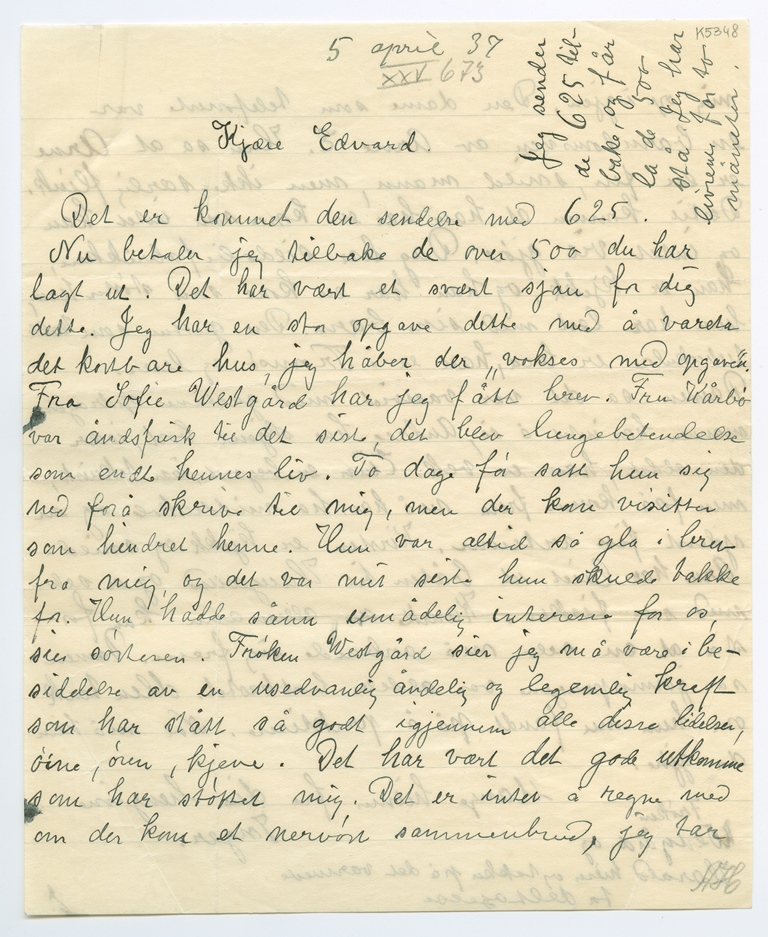 K5348
5 april 37
XXV 673
Jeg sender
de 625 til-
bake, og får
la de 500
stå. Jeg har
livrente for to
måneder.
Kjære Edvard.
Det er kommet den sendelse med 625.
Nu betaler jeg tilbake de over 500 du har
lagt ut. Det har vært et svært sjau for dig
dette. Jeg har en stor opgave dette med å vareta
det kostbare hus, jeg håber der „vokses med opgaven".
Fra Sofie Westgård har jeg fått brev. Fru Kårbø
var åndsfrisk til det siste, det blev lungebetendelse
som endte hennes liv. To dage før satt hun sig
ned forå skrive til mig, men der kom visitter
som hindret henne. Hun var altid så gla i brev
fra mig, og det var mit siste hun skulde takke
for. Hun hadde sånn umådelig interesse for os,
sier søsteren. Frøken Westgård sier jeg må være i be-
siddelse av en usedvanlig åndelig og legemlig kraft
som har stått så godt igjennem alle disse lidelser,
øine, ören, kjeve. Det har vært det gode utkomme
som har støttet mig. Det er intet å regne med
om der kom et nervöst sammenbrud, jeg tar